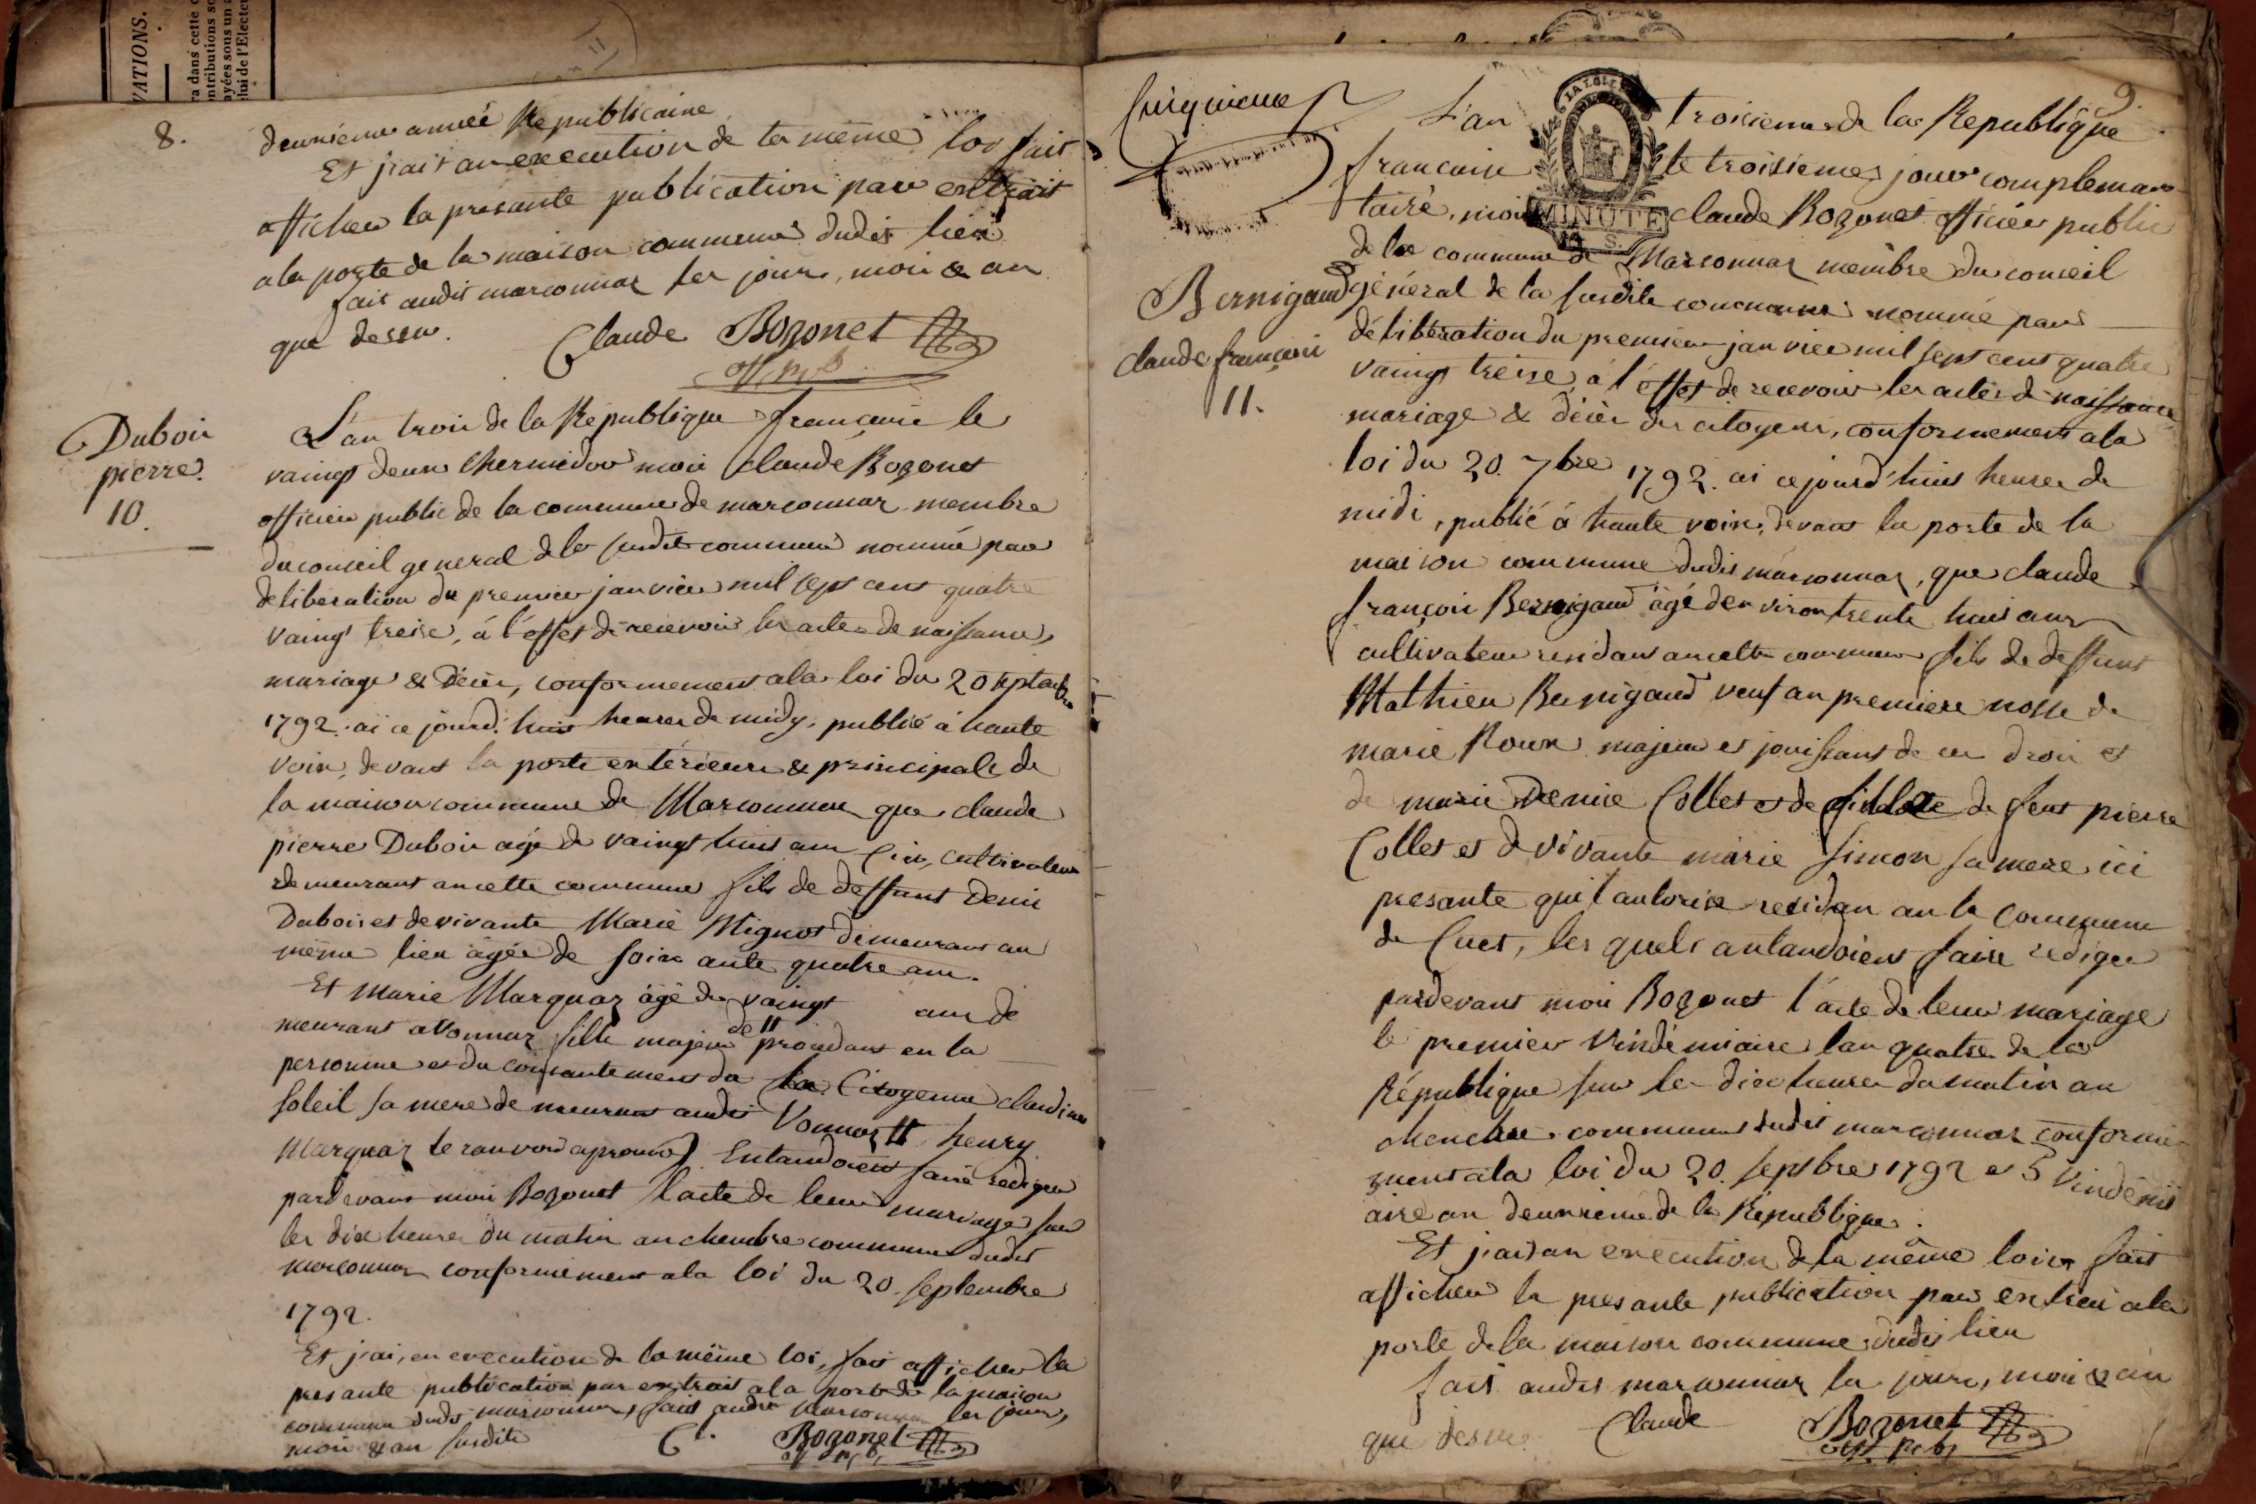 VATIONS.
ra dans cette
ontributions
ayées sons un
lui de l'Electe
8.
deuxieme année Republicaine
Et j'ait an execution de la même loi fait
afficher la présante publication par extrait
a la porte de la maison commune dudit lieu
fait audit marsonnaz les jours, mois & an
que dessu.
Claude Bozonet
off. p. b.
Duboi
pierre.
10.
L'an troi de la République françoise le
vaingt deux thermidor moi Claude Bozonet
officier public de la commune de marsonnaz membre
du conseil general de la susdite commune nommé par
deliberation du premier janvier mil sept cent quatre
vaingt treise, á l'effet de recevoir les actes de naissance,
mariage & décès, conformement a la loi du 20 septembre
1792. ai ce jourd'huit heures de midy, publié á haute
voix, devant la porte extérieure & principale de
la maison commune de Marsonnaz que claude
pierre Duboi agé de vaingt huit an cultivateur
demeurant an cette commune fils de deffunt Deni
Duboi et de vivante Marie Mignot demeurant au
même lieu âgée de soixante quatre an.
Et Marie Marquaz âgé de vaingt ans de
meurant a Vonnaz fille majeur de †† procedant en la
personne et du consantement de la Citoyenne claudine
Soleil sa mere demeurant audit Vonnaz †† henry
Marquaz le ranvoid aprouvé Entandoient faire rediger
pardevant moi Bozonet l'acte de leur mariage sur
les dix heures du matin an chembre commune dudit
marsonnaz conformement a la loi du 20. septembre
1792.
Et j'ai, en execution de la même loi, fait afficher la
presante publication par extrait a la porte de la maison
commune dudit marsonnaz, fait audit marsonnaz les jour,
moi & an susdite
C. Bozonet
off. p. b.
9.
L'an troisieme de la Republique
françoise le troisieme jourompleman
taire, moi Claude Bozonet officier public
LA LOI
MINUTE
de la commune de Marsonnaz membre du conseil
Bernigaud
claude françoi
11.
général de la susdite commune nommé par
délibération du premier janvier mil sept cent quatre
vaingt treize á l'effet de recevoir les actes de naissance
mariage & décès des citoyens, conformement a la
loi du 20. 7bre 1792. ai cejourd'huit heures de
midi, publié á haute voix, devant la porte de la
maison commune dudit marsonnaz, que claude
françoi Bernigaud âgé denviron trente huit ans
cultivateur residant an cette commune fils de deffunt
Mathieu Bernigaud veuf an premiere nosse de
marie Roux majeur et jouissant de ces droi et
de marie Denise Collet et de fille de feut pierre
Collet et de vivante marie Simon sa mere ici
presante qui l'autorise residan an la commune
de Cuet, les quels antandoient faire rediger
pardevant moi Bozonet l'acte de leur mariage
le premier Vindémiaire l'an quatre de la
République sur les dix heures du matin an
chenbre commune dudit marsonnaz conforme
ment a la loi du 20. septbre 1792 et 5 vindémi
aire an deuxieme de la République.
Et j'ai an execution de la même loix fait
afficher la presante publication par extrai a la
porte de la maison commune dudit lieu
fait audit marsonnaz les jours, moi & an
que dessu. Claude Bozonet
off. p. b.